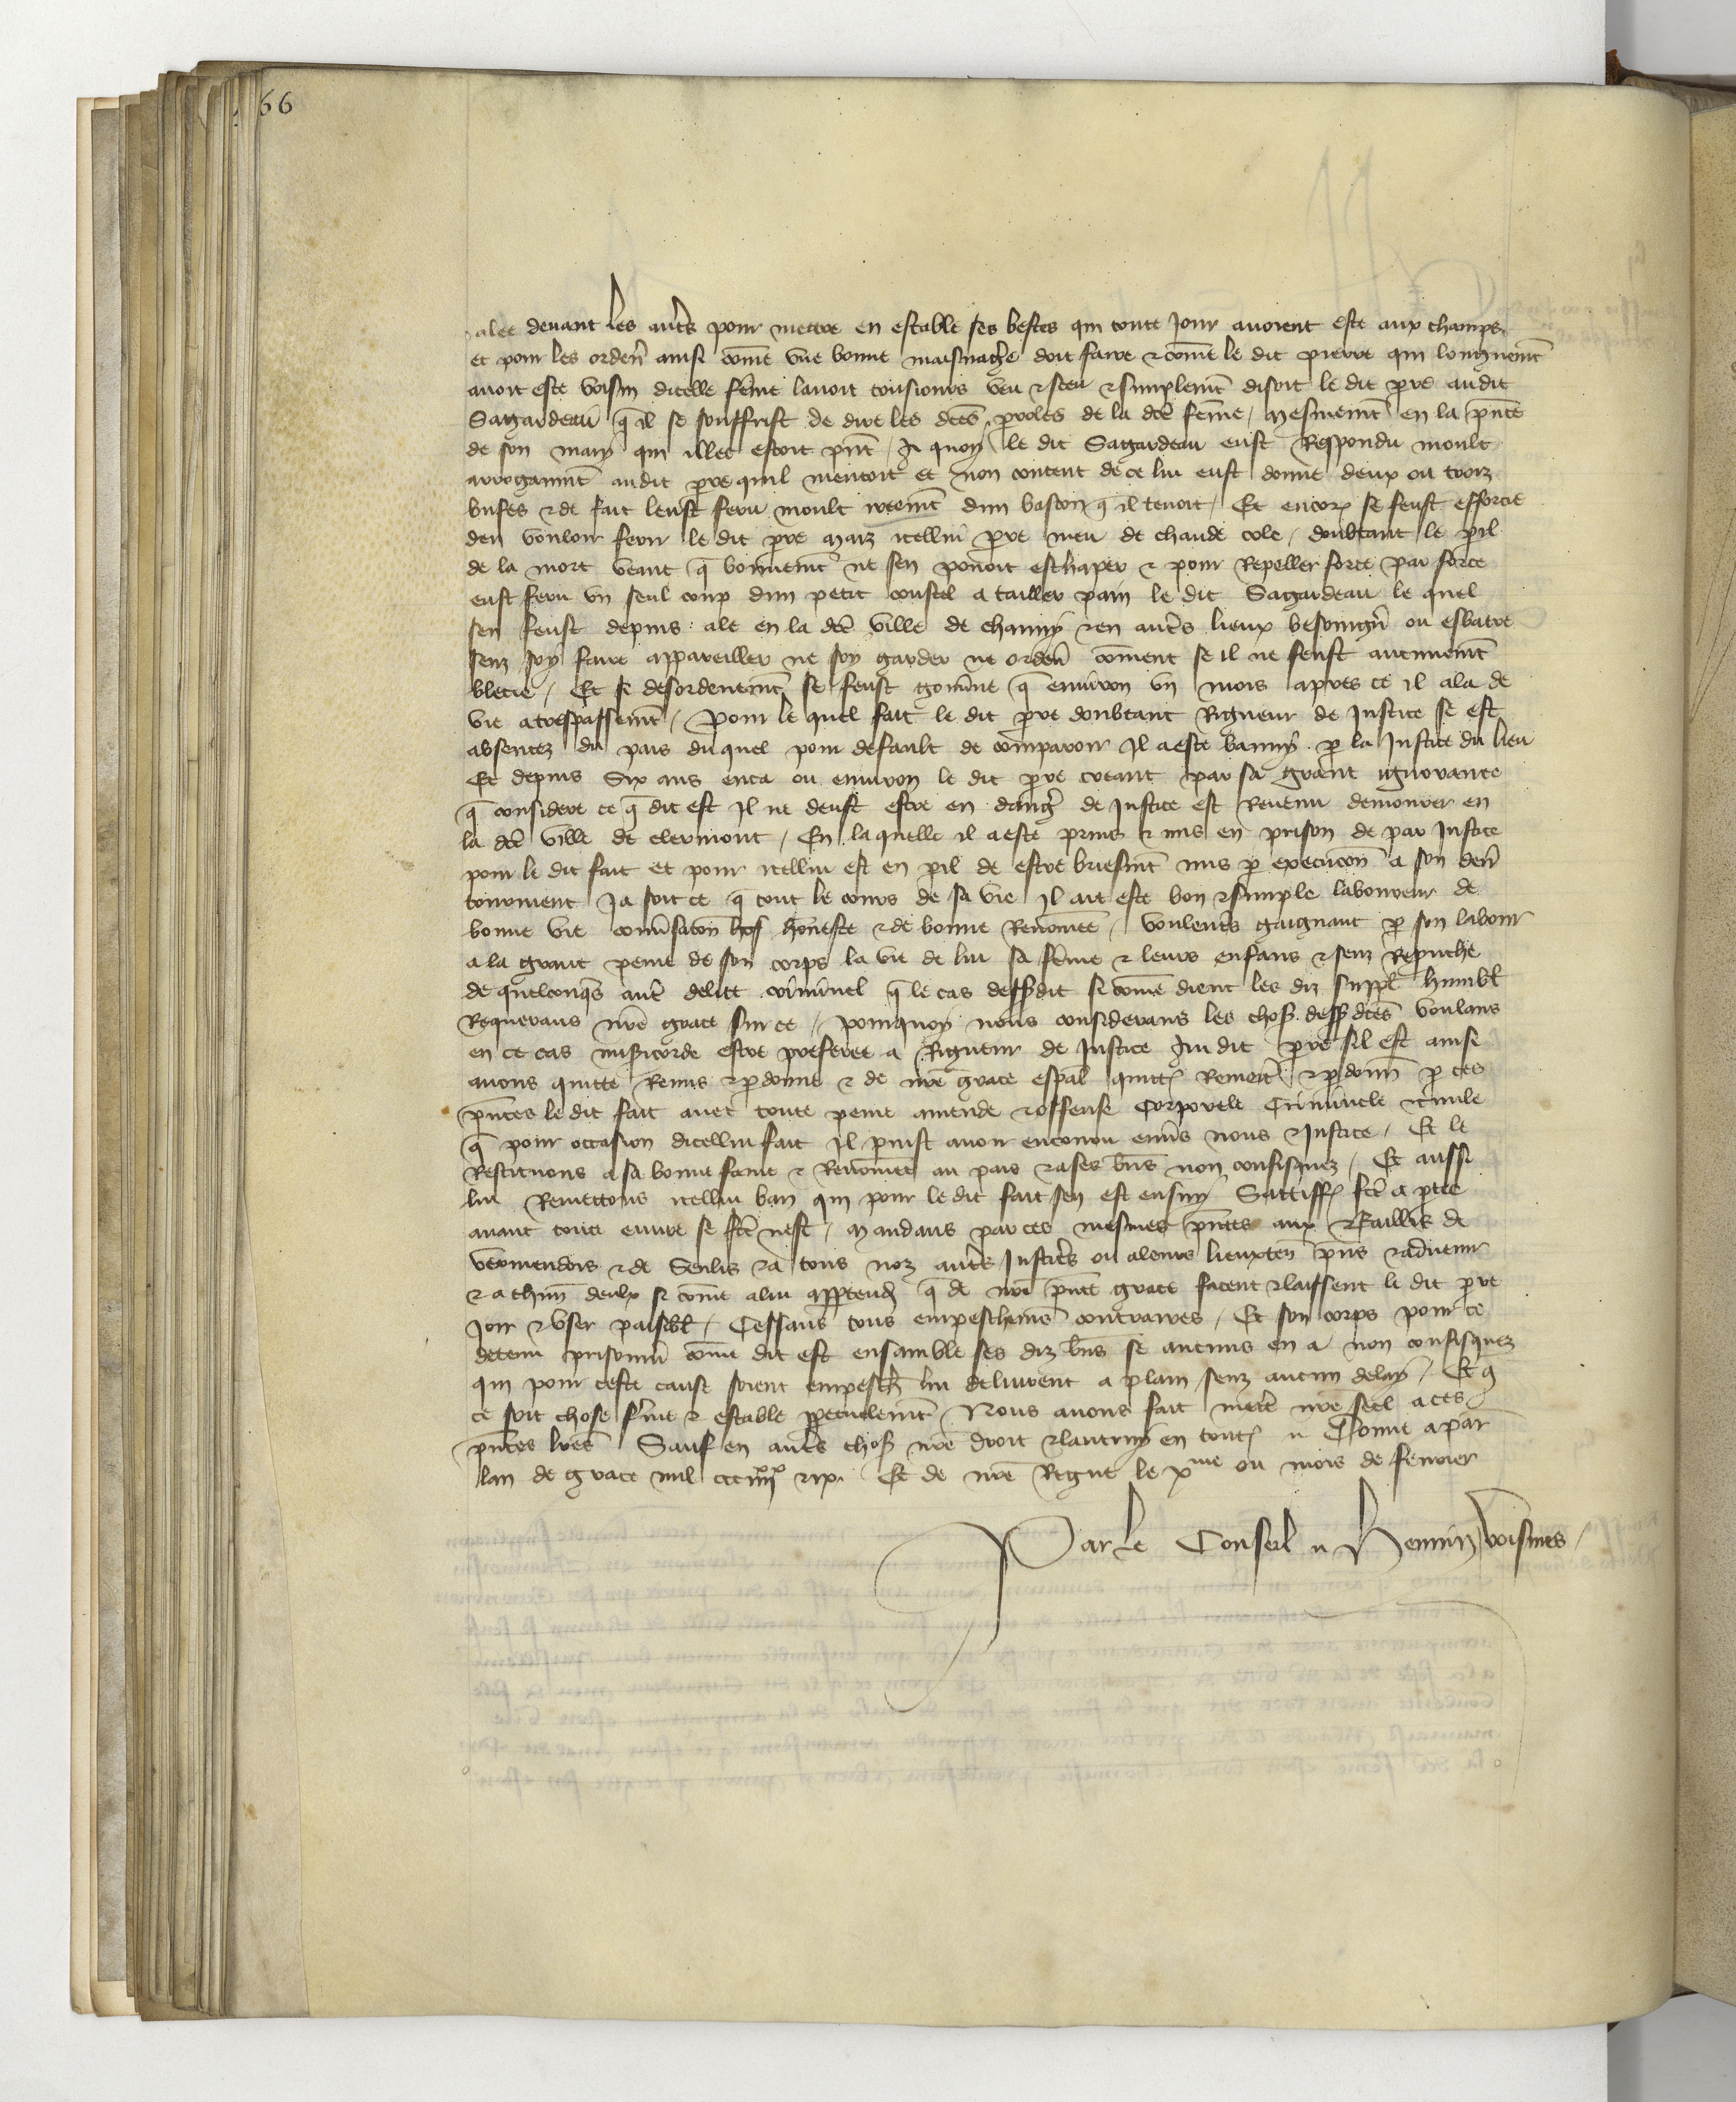 66
alee devant les autrs pour mettre en estable ses bestes qui toute jour avoient este aux champs
et pour les ordenr ainsi come une bonne maisnagre doit faire & come le dit pierre qui longuemt
avoit este voisin dicelle feme lavoit tousiours veu & sceu & simplemt disoit le dit pre audit
Sagardeau q il se souffrist de dire les dces proles de la dce feme / mesmemt en la pnce
de son mary qui illec estoit pnt / A quoy le dit Sagardeau eust Respondu moult
arrogamnt audit pre quil mentoit et non content de ce lui eust donne deux ou troiz
bufes & de fait leust feru moult ireemt dun baston q il tenoit / Et encor se feust efforcie
den vouloir ferir le dit pre Maiz icellui pre meu de chaude cole / doubtant le pil
de la mort veant q bonnemt ne sen povoit eschaper & pour Repeller force par force
eust feru un seul coup dun petit coustel a tailler pain le dit Sagardeau le quel
sen feust depuis ale en la dce ville de chauny & en autrs lieux besoingnr ou esbatre
senz soy faire appareiller ne soy garder ne ordenr coment se il ne feust aucunemt
blecie / Et si desordeneemt se feust gouvne q environ un mois apres ce il ala de
vie a trespassemt / Pour le quel fait le dit pre doubtant Rigueur de Justice se est
absentez du pais du quel pour default de comparoir Il a este banny p la Justice du lieu
Et depuis Six ans enca ou environ le dit pre creant par sa grant ignorance
q considere ce q dit est Il ne deust estre en dangr de Justice est Revenu demourer en
la dce ville de clermont / En la quelle il a este prins & mis en prison de par Justice
pour le dit fait et pour icellui est en pil de estre briefmt mis p execucion a son derr
tourment Ja soit ce q tout le cours de sa vie Il ait este bon & simple laboureur de
bonne vie convsacon honeste & de bonne Renomee / voulentrs gaignant p son labour
a la grant peine de son corps la vie de lui sa feme & leurs enfans & senz Reprouche
de quelconqs autr delict criminel q le cas dessusdit si come dient les diz suppl humbl
Requerans nre grace sur ce / pourquoy nous considerans les chos dessusdces voulans
en ce cas misicorde estre preferee a Rigueur de Justice Au dit pre sil est ainsi
avons quitte Remis & pdonne & de nre grace espal quitt Remett & pdonn p ces
pntes le dit fait avec toute peine amende & offense Corporele Criminele & civile
q pour occasion dicellui fait Il puist avoir encouru envrs nous & Justice / Et le
Restituons a sa bonne fame & Renomee au pais & a ses bns non confisquez / Et aussi
lui Remettons icellui ban qui pour le dit fait sen est ensuy Satiffaccion fce a ptie
avant toute euvre se fce nest / Mandans par ces mesmes pntes aux & Baillis de
vermendois & de Senlis & a tous noz autrs Justicrs ou a leurs lieuxten pns & advenir
& a chun deulx si come a lui apptendr q de nre pnte grace facent & laissent le dit pre
Joir & user paisibl / Cessans tous empeschemens contraires / Et son corps pour ce
detenu prisonnir come dit est ensamble ses diz bns se aucuns en a non confisquez
qui pour ceste cause soient empesch lui delivrent a plain senz aucun delay / Et q
ce soit chose frme & estable ppetuelemt Nous avons fait mettr nre seel a ces
pntes lres Sauf en autrs chos nre droit & lautruy en tout // Donne a Par
lan de grace mil ccc iiiixx & ix. Et de nre Regne le xme ou mois de fevrier
Par le Conseil // Hennin voisines /